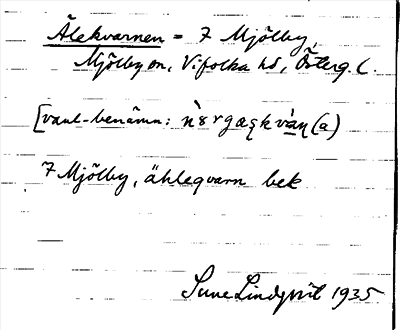 Ålekvarnen = 7 Mjölby
Mjölby sn, Vifolka hd, Österg. l.
[vanl. benämn:
7 Mjölby, åhleqvarn bek
Sune Lindqvist 1935